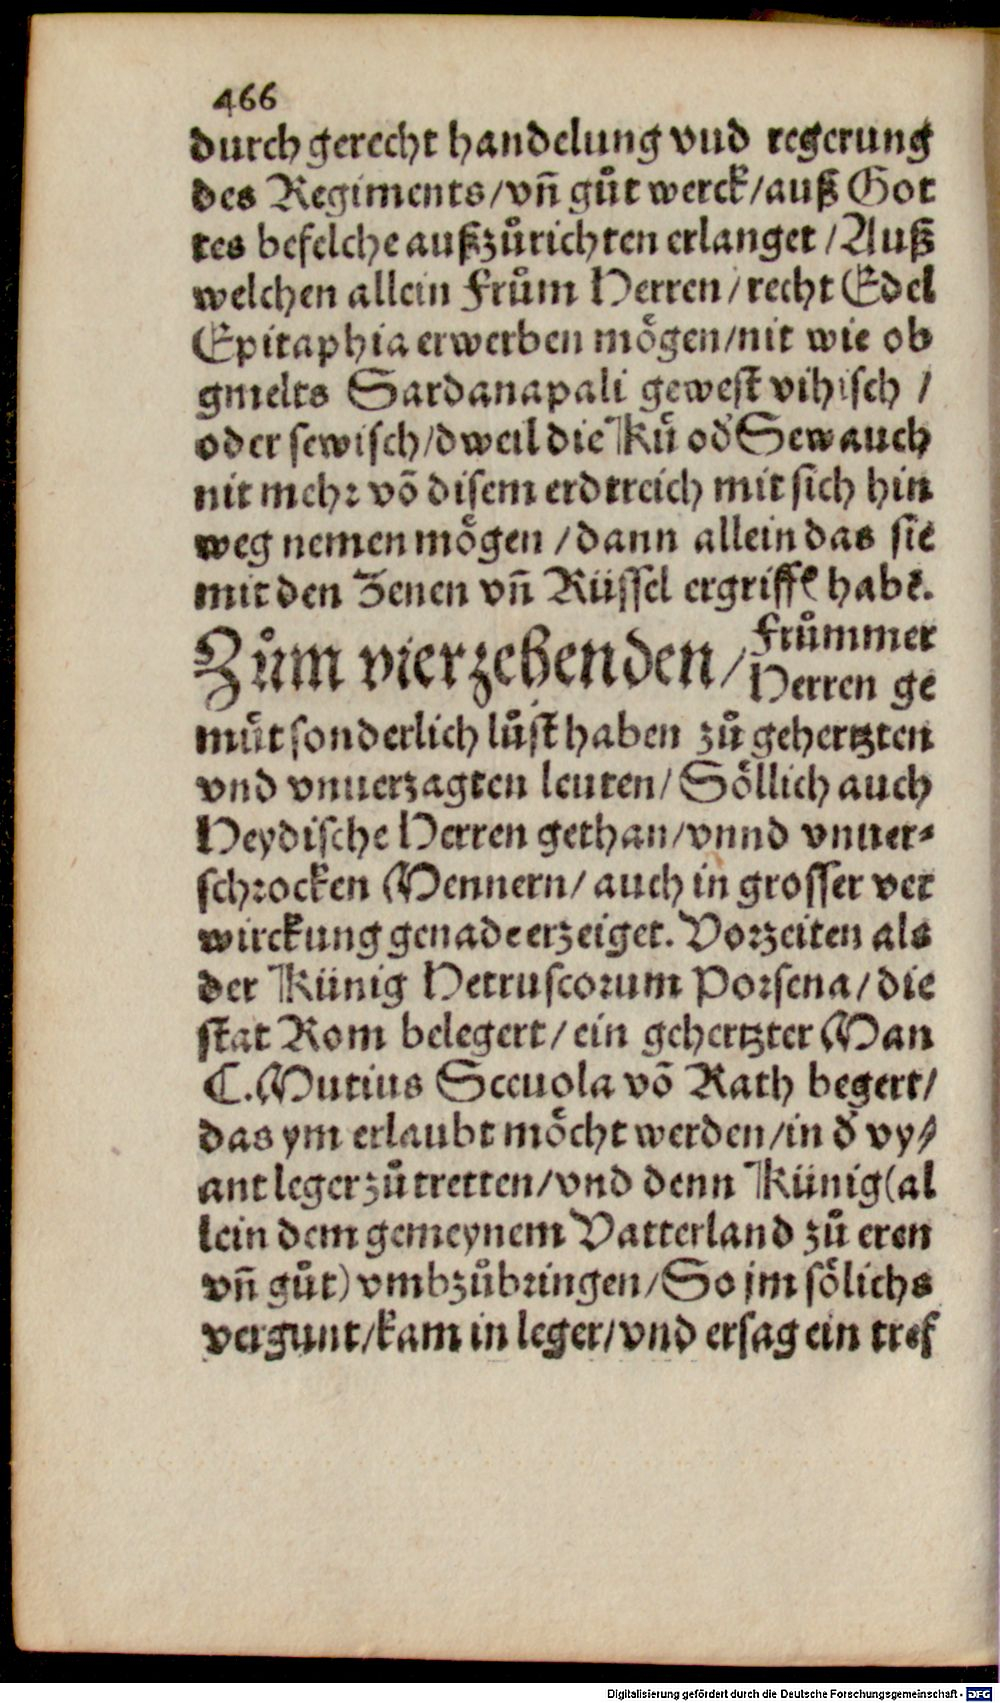 466
durch gerecht handelung vnd regerung
des Regiments/vñ gůt werck/auß Got
tes befelche außzůrichten erlanget /Auß
welchen allein Frům Herren/recht Edel
Epitaphia erwerben mögen/nit wie ob
gmelts Sardanapali gewest vihisch /
oder sewisch/dweil die Ků od̕ Sew auch
nit mehr võ disem erdtreich mit sich hin
weg nemen mögen /dann allein das sie
mit den Zenen vñ Rüssel ergriffē habē.
Zům vierzehenden/ Frůmmer
Herren ge
můt sonderlich lůst haben zů gehertzten
vnd vnuerzagten leuten/Söllich auch
Heydische Herren gethan/vnnd vnuer-
schrocken Mennern/ auch in grosser ver
wirckung genade erzeiget. Vorzeiten als
der Künig Hetruscorum Porsena/die
stat Rom belegert/ein gehertzter Man
C.Mutius Sceuola võ Rath begert/
das ym erlaubt möcht werden/in d̕ vy-
ant leger zů tretten/vnd denn Künig(al
lein dem gemeynem Vatterland zů eren
vñ gůt) vmbzůbringen/So jm sölichs
vergunt/kam in leger/vnd ersag ein tref
Digitalisierung gefördert durch die Deutsche Forschungsgemeinschaft - DFG